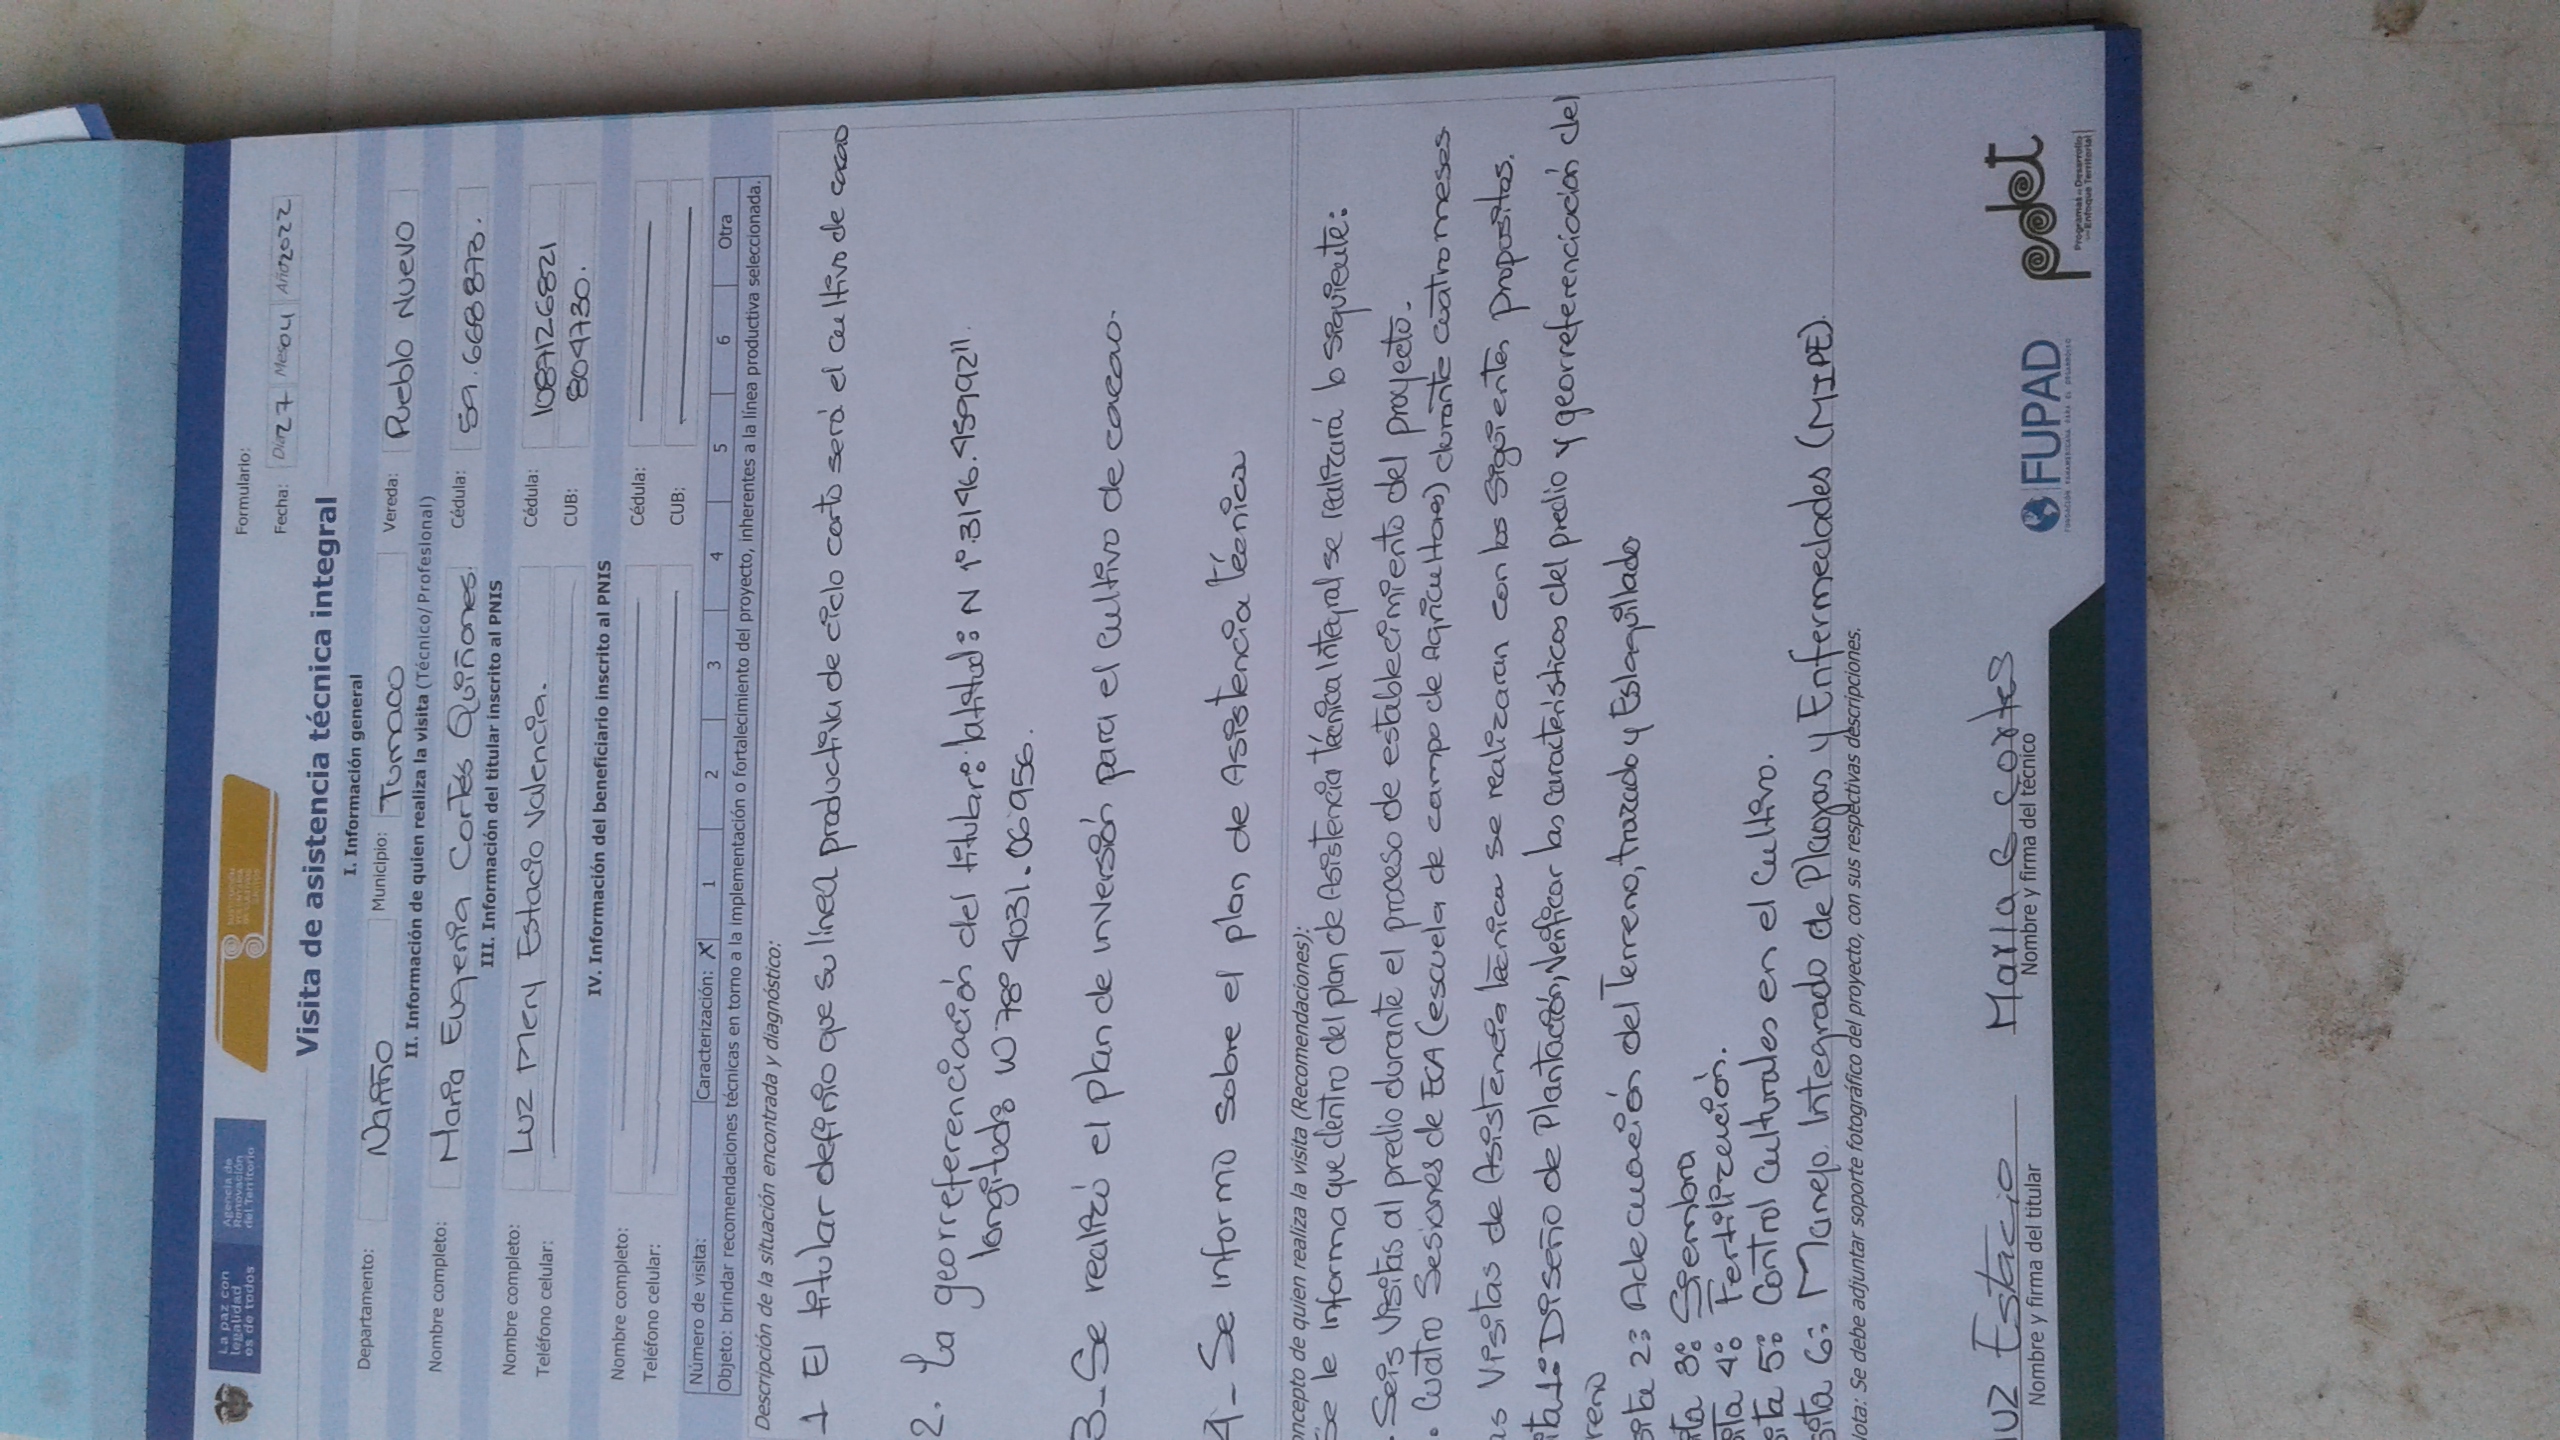 La paz con
legalidad
es de todos
Agencia de
Renovación
del Territorio
Formulario:
Fecha: Día 27 Mes 04 Año 2022
Visita de asistencia técnica integral
I. Información general
Departamento: Nariño Municipio: Tumaco Vereda: Pueblo Nuevo
II. Información de quien realiza la visita (Técnico/Profesional)
Nombre completo: Maria Eugenia Cortés Quiñones. Cédula: 59.668.873.
III. Información del titular inscrito al PNIS
Nombre completo: Luz Mery Estacio Valencia. Cédula: 1087126821
Teléfono celular: CUB: 804730.
IV. Información del beneficiario inscrito al PNIS
Nombre completo: Cédula:
Teléfono celular: CUB:
Número de visita: Caracterización: X 1 2 3 4 5 6 Otra
Objeto: brindar recomendaciones técnicas en torno a la implementación o fortalecimiento del proyecto, inherentes a la línea productiva seleccionada.
Descripción de la situación encontrada y diagnóstico:
1 El titular definio que su línea productiva de ciclo corto será el cultivo de cacao
2. La georreferenciación del titular: latitud: N 1° 31'46.45992"
longitud: W 78° 40'31.06956.
3- Se realizó el plan de inversión para el cultivo de cacao.
4- Se informo sobre el plan de Asistencia técnica
oncepto de quien realiza la visita (Recomendaciones):
Se le informa que dentro del plan de Asistencia técnica integral se realizará lo siguiente:
. Seis visitas al predio durante el proceso de establecimiento del proyecto.
. Cuatro Sesiones de ECA (escuela de campo de Agricultores) durante cuatro meses
as visitas de Asistencia técnica se realizaran con los siguientes propositos.
ita 1: Diseño de Plantación, Verificar las características del predio y georreferenciación del
reno
sita 2: Adecuación del terreno, trazado y Estaquillado
ita 3: Siembra
ita 4: Fertilización.
ita 5: Control Culturales en el Cultivo.
sita 6: Manejo Integrado de Plagas y Enfermedades (MIPE)
lota: Se debe adjuntar soporte fotográfico del proyecto, con sus respectivas descripciones.
uz Estacio Maria E Cortes
Nombre y firma del titular Nombre y firma del técnico
FUPAD
FUNDACIÓN PANAMERICANA PARA EL DESARROLLO
pdet
Programas de Desarrollo
con Enfoque Territorial